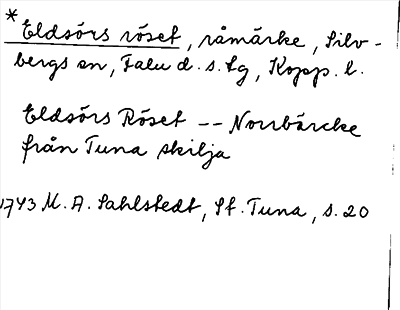 *Eldsörs röset, råmärke, Silv-
bergs sn, Falu d. s. tg, Kopp. l.
Eldsörs Röset -- Norrbärcke
från Tuna skilja
1743 M. A. Sahlstedt, St. Tuna, s. 20